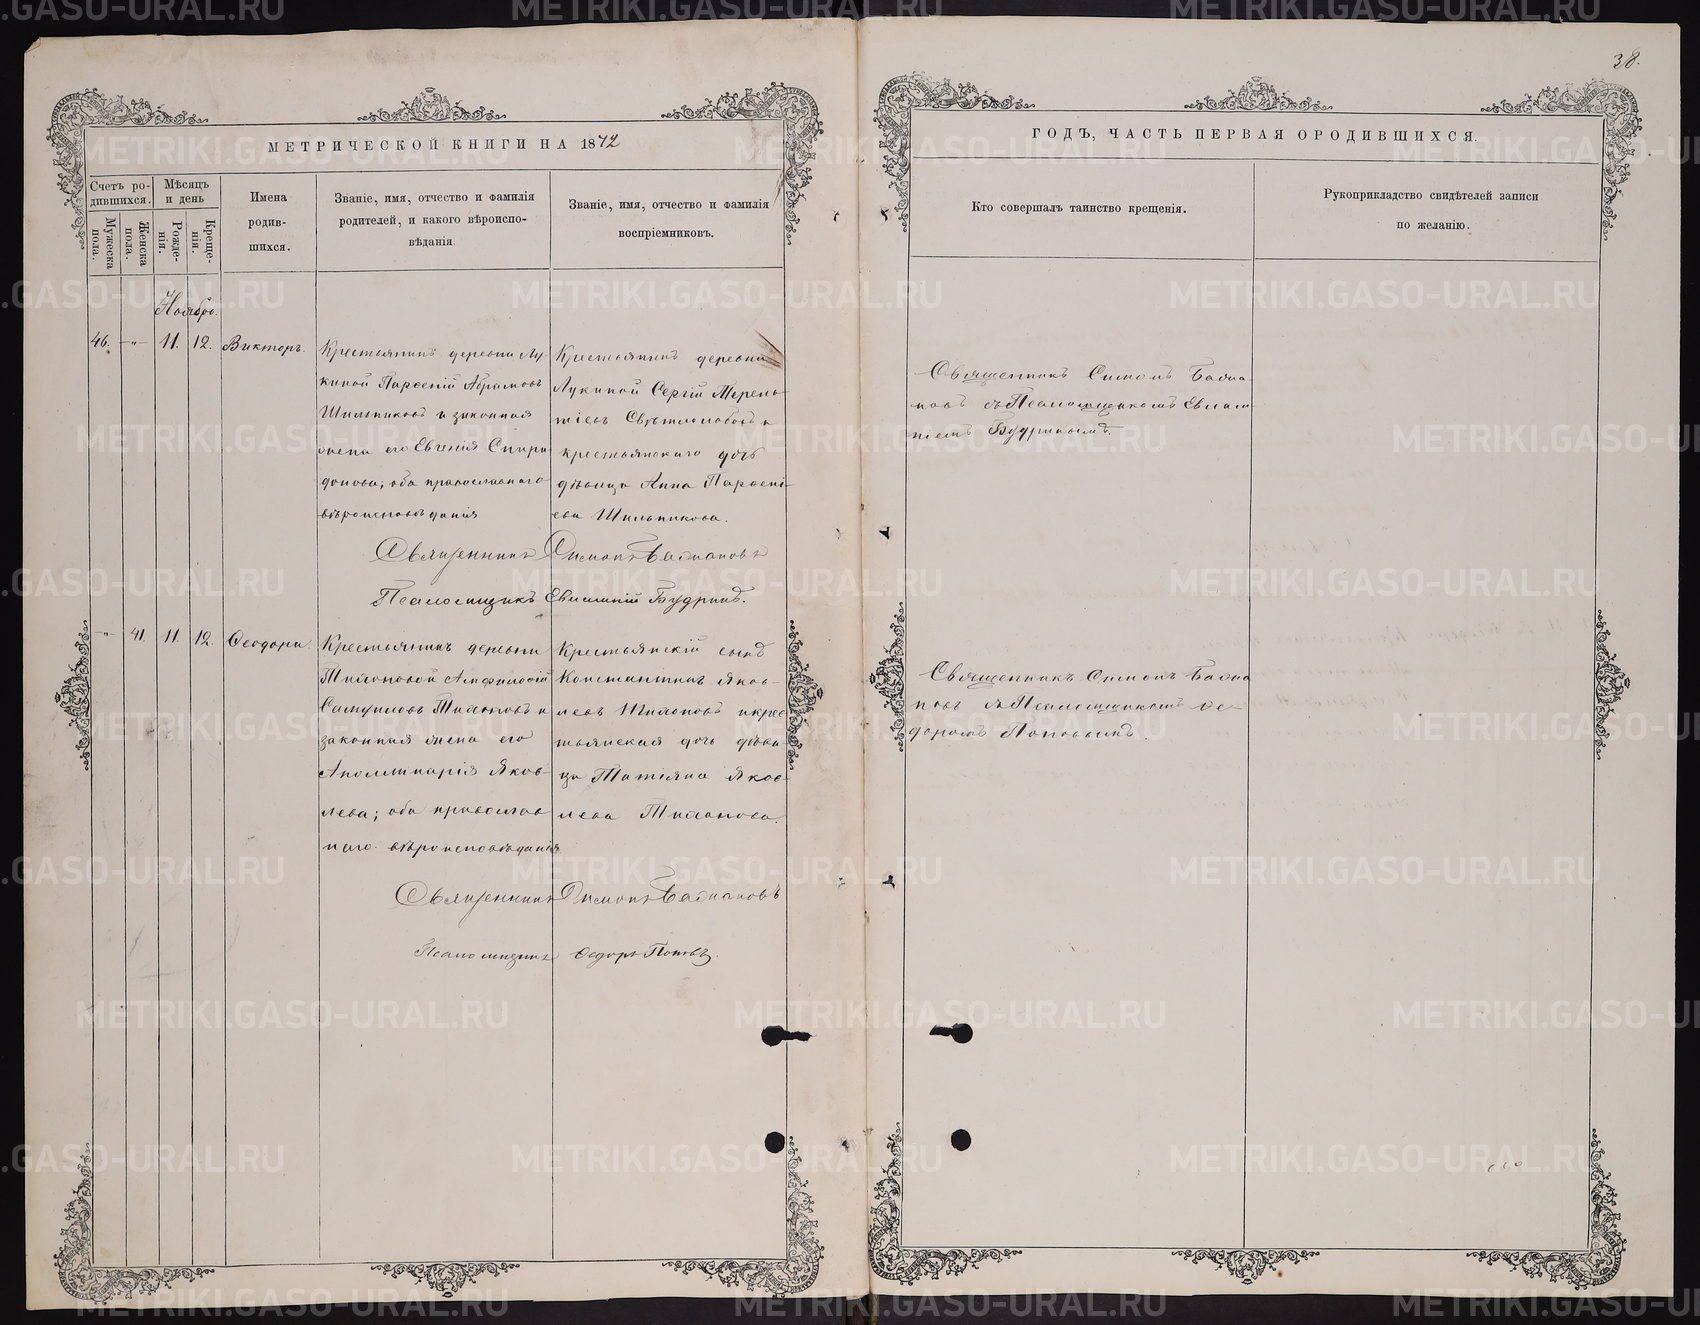 38.
МЕТРИЧЕСКОЙ КНИГИ НА 1872
ГОДЪ, ЧАСТЬ ПЕРВАЯ О РОДИВШИХСЯ.
Счетъ ро-
дившихся.
Мѣсяцъ
и день
Мужеска
пола.
Женска
пола.
Рожде-
нія.
Креще-
нія.
Имена
родив-
шихся.
Званіе, имя, отчество и фамилія
родителей, и какого вѣроиспо-
вѣданія.
Званіе, имя, отчество и фамилія
воспріемниковъ.
Кто совершалъ таинство крещенія.
Рукоприкладство свидѣтелей записи
по желанію.
Ноябрь.
46. -"- 11. 12. Викторъ.
Крестьянинъ деревни Лу
киной Парѳеній Абрамовъ
Шильниковъ и законная
жена его Евгенія Спири
донова; оба православнаго
вѣроисповѣданія
Крестьянинъ деревни
Лукиной Сергій Терень
тіевъ Свѣтлолобовъ и
крестьянскаго дочь
дѣвица Анна Парѳені
ева Шильникова.
Священникъ Симонъ Бабиа
новъ съ Псаломщикомъ Евлам
піемъ Будринымъ.
Священникъ Симонъ Бабиановъ
Псаломщикъ Евлампій Будринъ.
-"- 41. 11. 12. Ѳеодора.
Крестьянинъ деревни
Тихоновой Амфилохій
Самуиловъ Тихоновъ и
законная жена его
Аполлинарія Яков-
лева; оба православ
наго вѣроисповѣданія
Крестьянскій сынъ
Константинъ Яков-
левъ Тихоновъ и крес
тьянская дочь дѣви
ца Татіяна Яков-
лева Тихонова.
Священникъ Симонъ Бабиа
новъ съ Псаломщикомъ Ѳе-
доромъ Поповымъ.
Священникъ Симонъ Бабиановъ
Псаломщикъ Ѳедоръ Поповъ.
METRIKI.GASO-URAL.RU